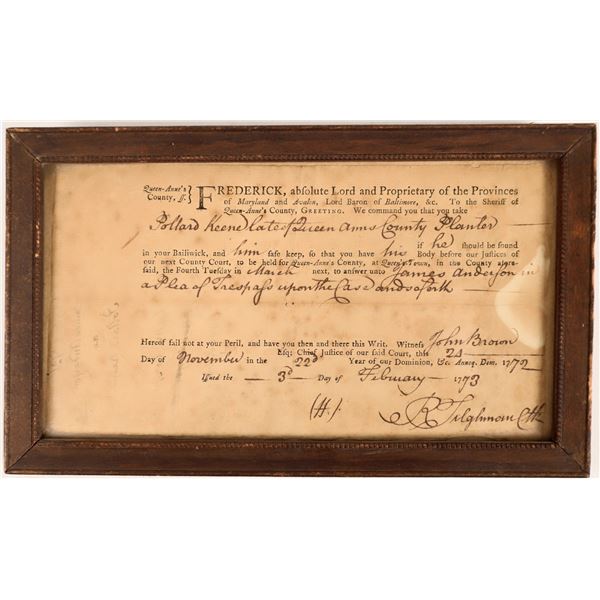 Queen-Anne's County, ss. } FREDERICK, absolute Lord and Proprietary of the Provinces
of Maryland and Avalon, Lord Baron of Baltimore, &c. To the Sheriff of
Queen-Anne's County, GREETING. We command you that you take
Pollard Keene late of Queen Anns County Planter
if he should be found
in your Bailiwick, and him safe keep, so that you have his Body before our Justices of
our next County Court, to be held for Queen-Anne's County, at Queen's-Town, in the County afore-
said, the Fourth Tuesday in March next, to answer unto James Anderson in
a Plea of Trespass upon the Case and so forth
Hereof fail not at your Peril, and have you then and there this Writ. Witness John Brown
Esq; Chief Justice of our said Court, this 24
Day of November in the 22d Year of our Dominion, &c. Annoq. Dom. 1772
Issued the 3d Day of February 1773
(H.)
R Tilghman Clk